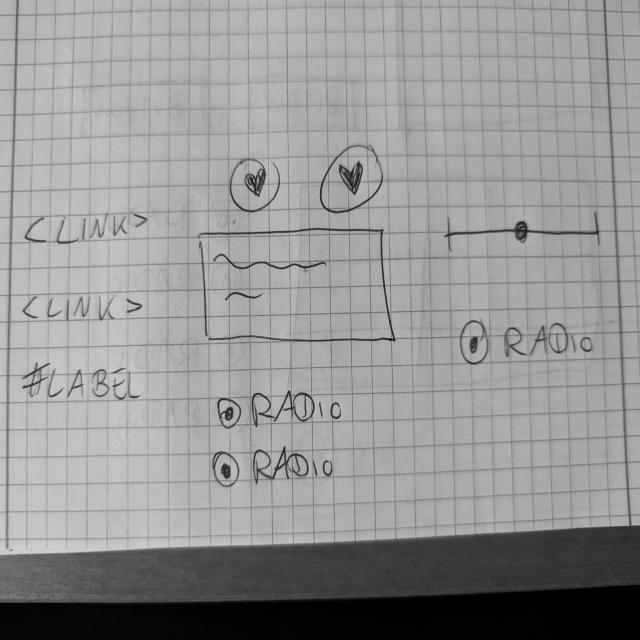 <LINK>
<LINK>
#LABEL
RADIO
RADIO
RADIO